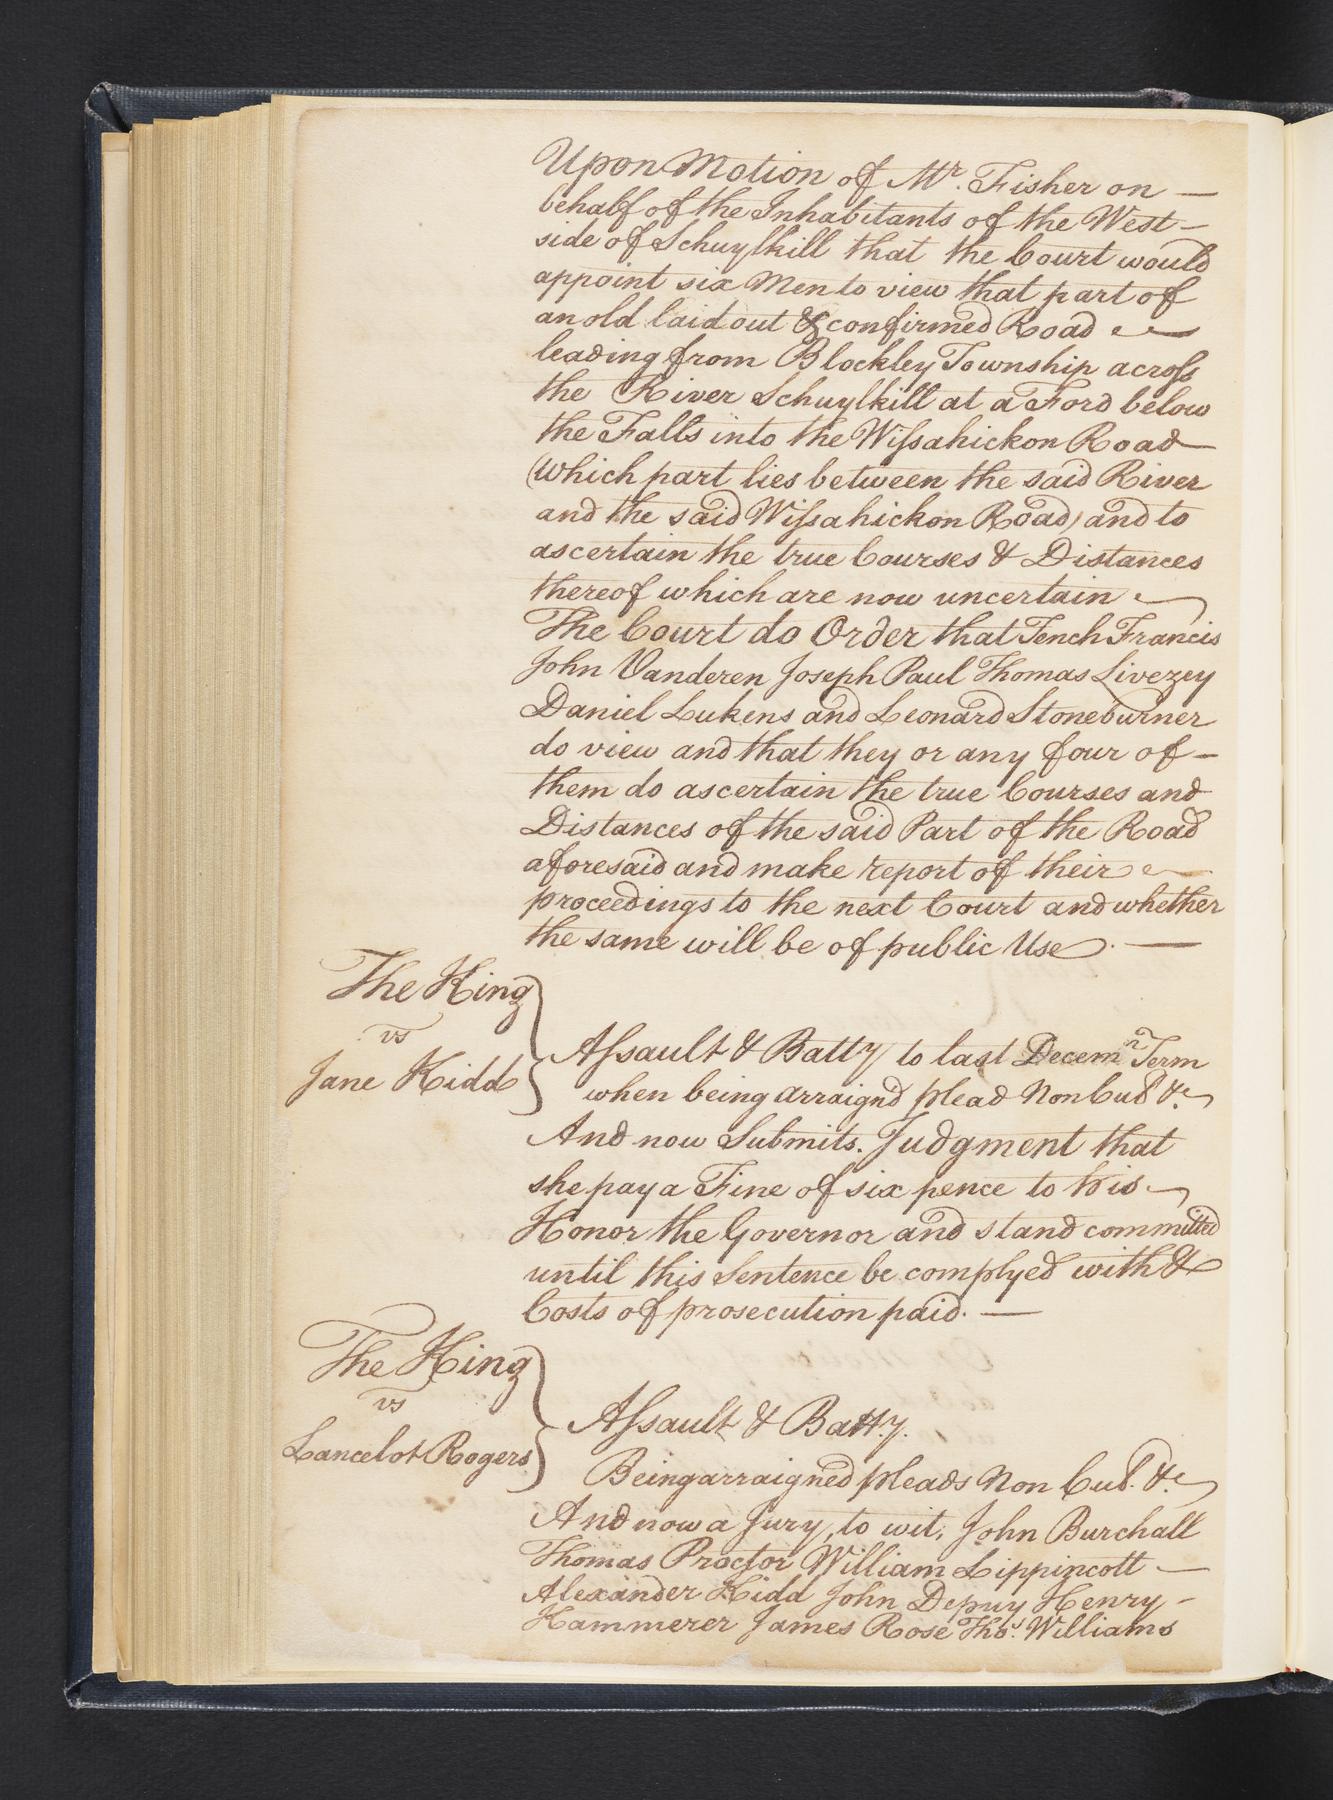 Upon Motion of Mr. Fisher on —
behalf of the Inhabitants of the West –
side of Schuylkill that the Court would
appoint six Men to view that part of
an old laid out & confirmed Road —
leading from Blockley Township across
the River Schuylkill at a Ford below
the Falls into the Wissahickon Road
(which part lies between the said River
and the said Wissahickon Road) and to
ascertain the true Courses & Distances
thereof which are now uncertain.
The Court do Order that Tench Francis
John Vanderen Joseph Paul Thomas Livezey
Daniel Lukens and Leonard Stoneburner
do view and that they or any four of –
them do ascertain the true Courses and
Distances of the said Part of the Road
aforesaid and make report of their
proceedings to the next Court and whether
the same will be of public Use. —
The King
vs
Jane Kidd
Assault & Batty to last Decemr Term
when being arraignd plead Non Cul &c
And now Submits. Judgment that
she pay a Fine of six pence to his
Honor the Governor and stand committed
until this Sentence be complyed with &
Costs of prosecution paid. —
The King
vs
Lancelot Rogers
Assault & Batty.
Being arraigned pleads Non Cul. &c
And now a Jury, to wit, John Burchall
Thomas Proctor William Lippincott —
Alexander Kidd John Depuy Henry -
Kammerer James Rose Thos. Williams